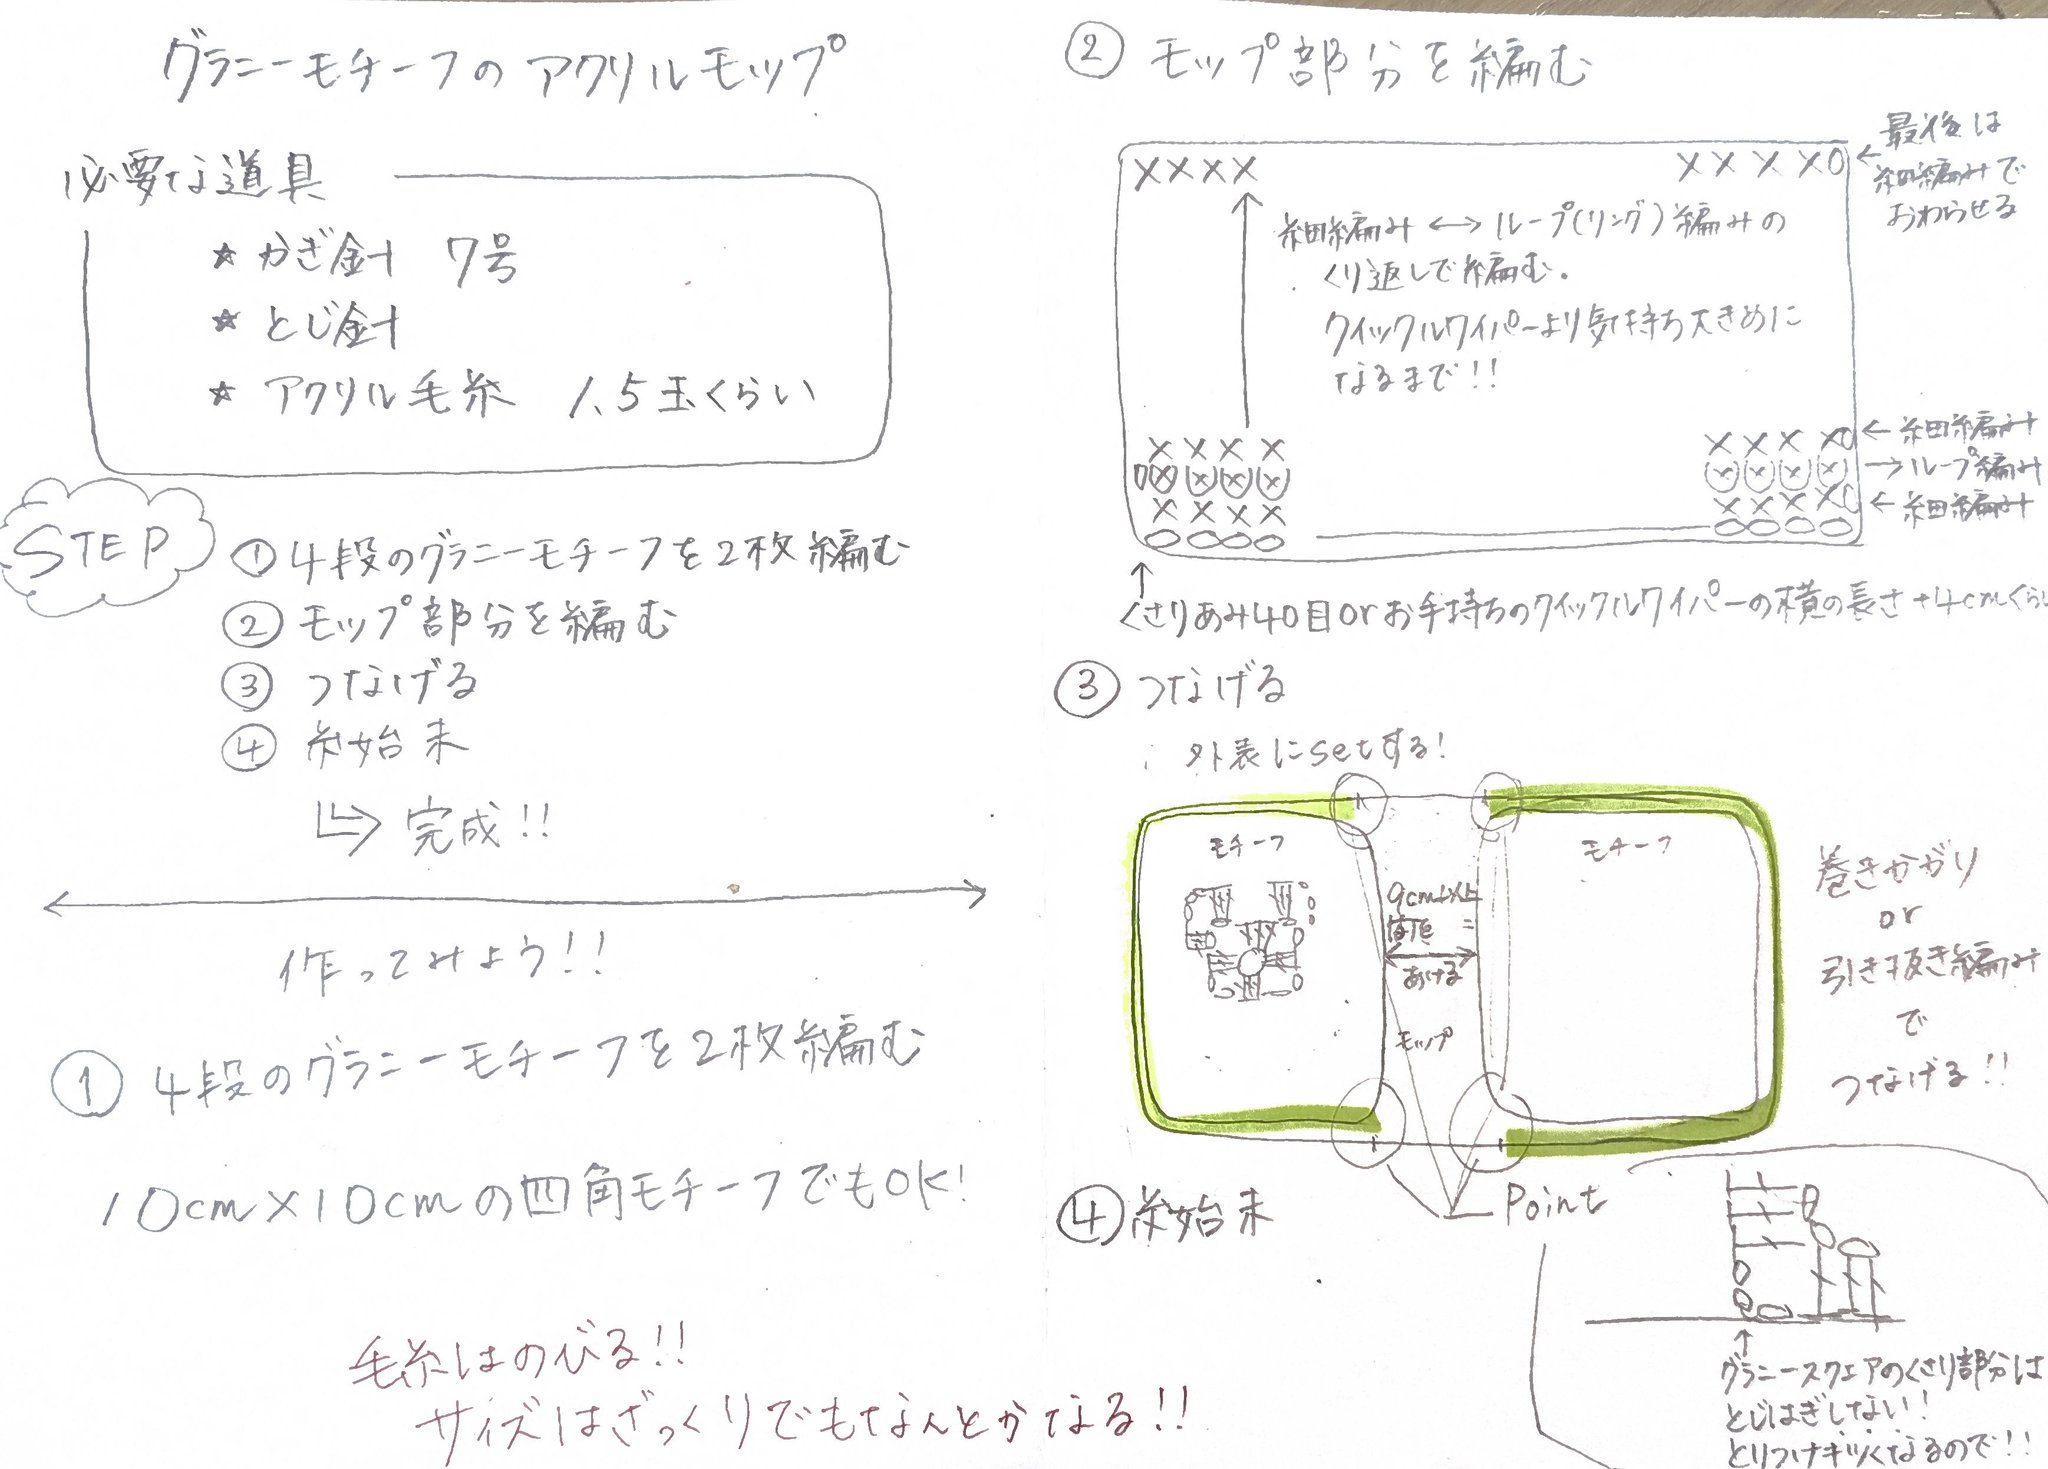 グラニーモチーフのアクリルモップ
必要な道具
☆ かぎ針 7号
☆ とじ針
☆ アクリル毛糸 1.5玉くらい
STEP
① 4段のグラニーモチーフを2枚編む
② モップ部分を編む
③ つなげる
④ 糸始末
完成!!
作ってみよう!!
① 4段のグラニーモチーフを2枚編む
10cm×10cmの四角モチーフでもOK!
毛糸はのびる!!
サイズはざっくりでもなんとかなる!!
② モップ部分を編む
最後は
細編みで
おわらせる
細編み ↔ ループ(リング)編みの
くり返しで編む。
クイックルワイパーより気持ち大きめに
なるまで!!
← 細編み
→ ループ編み
← 細編み
くさりあみ40目orお手持ちのクイックルワイパーの横の長さ+4cmくらい
③ つなげる
外表にsetする!
モチーフ
モチーフ
9cm以上
あける
モップ
巻きかがり
or
引き抜き編み
で
つなげる!!
Point
④ 糸始末
グラニースクェアのくさり部分は
とじはぎしない!
とりつけキツくなるので!!